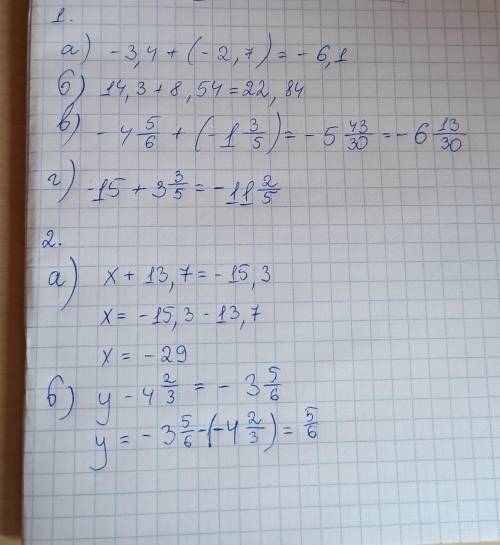 1.
а) -3,4 + (-2,7) = -6,1
б) 14,3 + 8,54 = 22,84
в) -4 5/6 + (-1 3/5) = -5 43/30 = -6 13/30
г) -15 + 3 3/5 = -11 2/5
2.
а) x + 13,7 = -15,3
x = -15,3 - 13,7
x = -29
б) y - 4 2/3 = -3 5/6
y = -3 5/6 - (-4 2/3) = 5/6